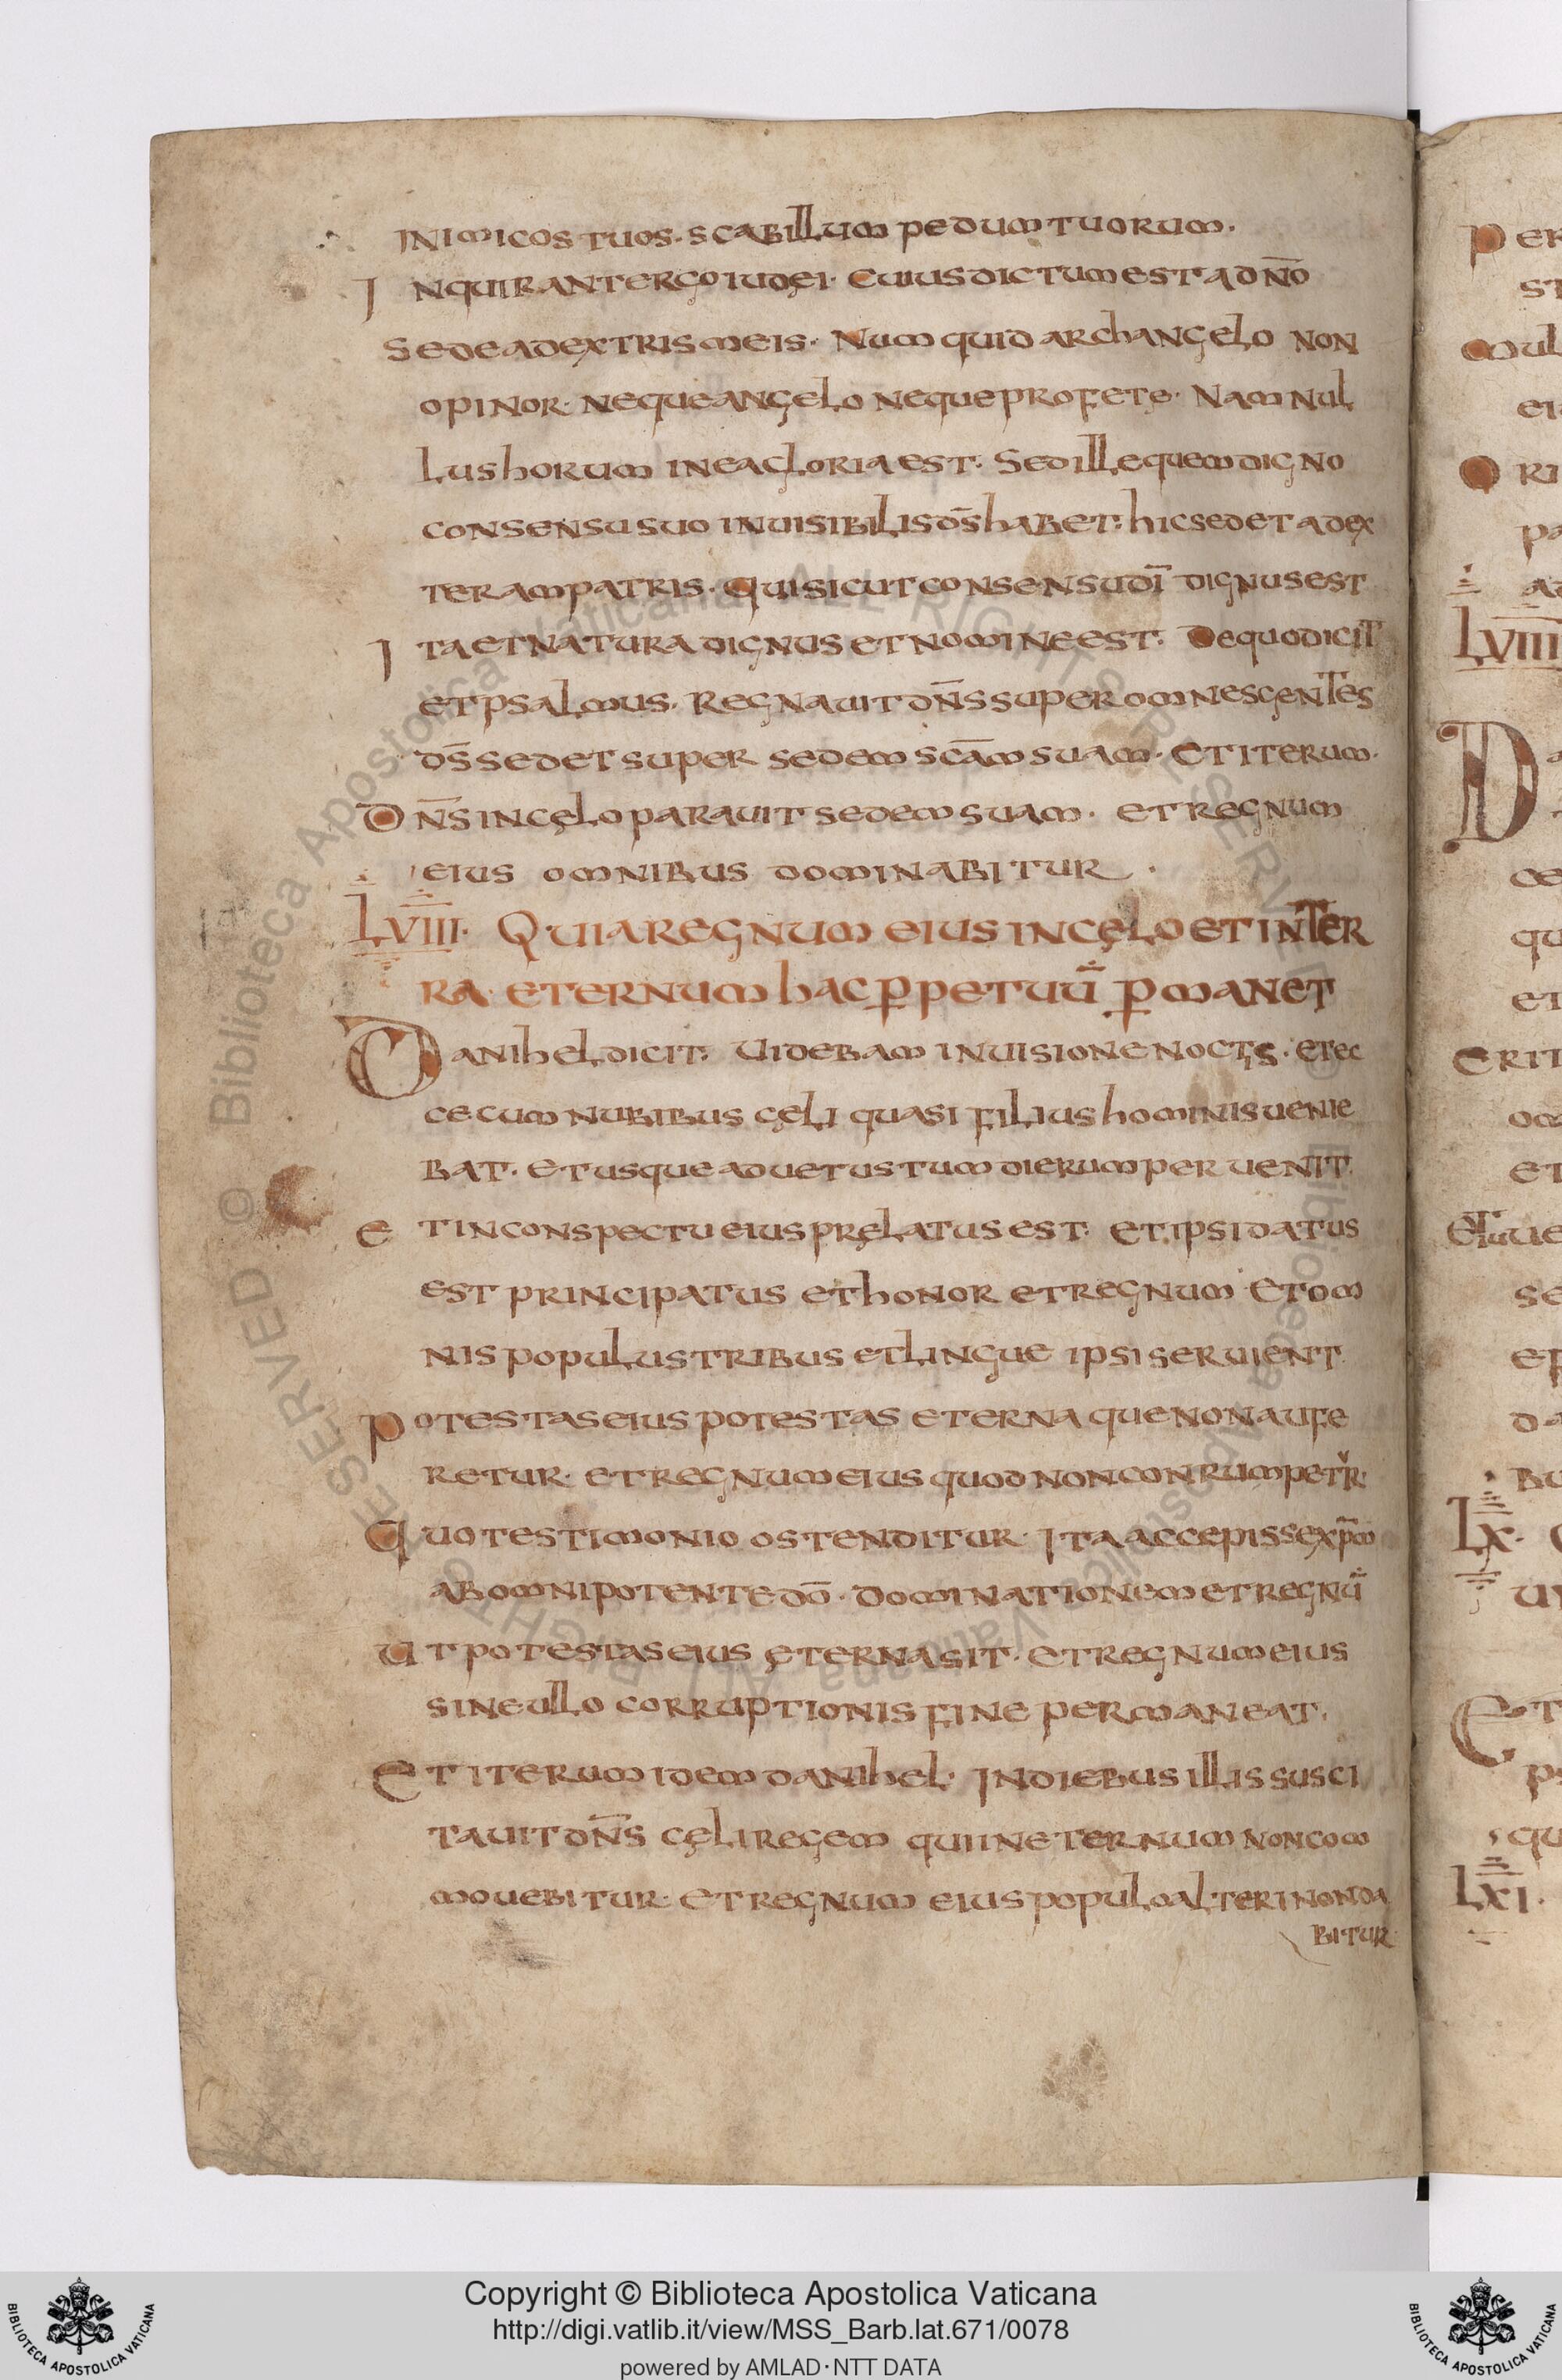 INIMICOS TUOS· SCABILLUM PEDUM TUORUM·
INQUIRANT ERGO IUDĘI· CUIUS DICTUM EST A DN̄O
SEDE A DEXTRIS MEIS· NUMQUID ARCHANGELO NON
OPINOR· NEQUE ANGELO NEQUE PROFETE· NAM NUL
LUS HORUM IN EA GLORIA EST· SED ILLE QUEM DIGNO
CONSENSU SUO INUISIBILIS DS̄ HABET· HIC SEDET AD EX
TERAM PATRIS· QUI SICUT CONSENSU DĪ DIGNUS EST
ITA ET NATURA DIGNUS ET NOMINE EST· DE QUO DICIT
ET PSALMUS· REGNAUIT DN̄S SUPER OMNES GENTES
DS̄ SEDET SUPER SEDEM SCĀM SUAM· ET ITERUM·
DN̄S IN CĘLO PARAUIT SEDEM SUAM· ET REGNUM
EIUS OMNIBUS DOMINABITUR·
LVIIII· QUIA REGNUM EIUS IN CĘLO ET IN TER
RA· ETERNUM HAC P̱PETUŪ P̱MANET
DANIHEL DICIT· UIDEBAM IN UISIONE NOCTIS· ET EC
CE CUM NUBIBUS CĘLI QUASI FILIUS HOMINIS UENIE
BAT· ET USQUE AD UETUSTUM DIERUM PERUENIT·
ET IN CONSPECTU EIUS PRĘLATUS EST· ET IPSI DATUS
EST PRINCIPATUS ET HONOR ET REGNUM· ET OM
NIS POPULUS TRIBUS ET LINGUE IPSI SERUIENT·
POTESTAS EIUS POTESTAS ETERNA QUE NON AUFE
RETUR· ET REGNUM EIUS QUOD NON CONRUMPETUR·
QUO TESTIMONIO OSTENDITUR· ITA ACCEPISSE XP̄M
AB OMNIPOTENTE DŌ· DOMINATIONEM ET REGNŪ
UT POTESTAS EIUS ĘTERNA SIT· ET REGNUM EIUS
SINE ULLO CORRUPTIONIS FINE PERMANEAT·
ET ITERUM IDEM DANIHEL· IN DIEBUS ILLIS SUSCI
TAUIT DN̄S CĘLI REGEM QUI IN ETERNUM NON COM
MOUEBITUR· ET REGNUM EIUS POPULO ALTERI NON DA
BITUR
Copyright © Biblioteca Apostolica Vaticana
http://digi.vatlib.it/view/MSS_Barb.lat.671/0078
powered by AMLAD·NTT DATA